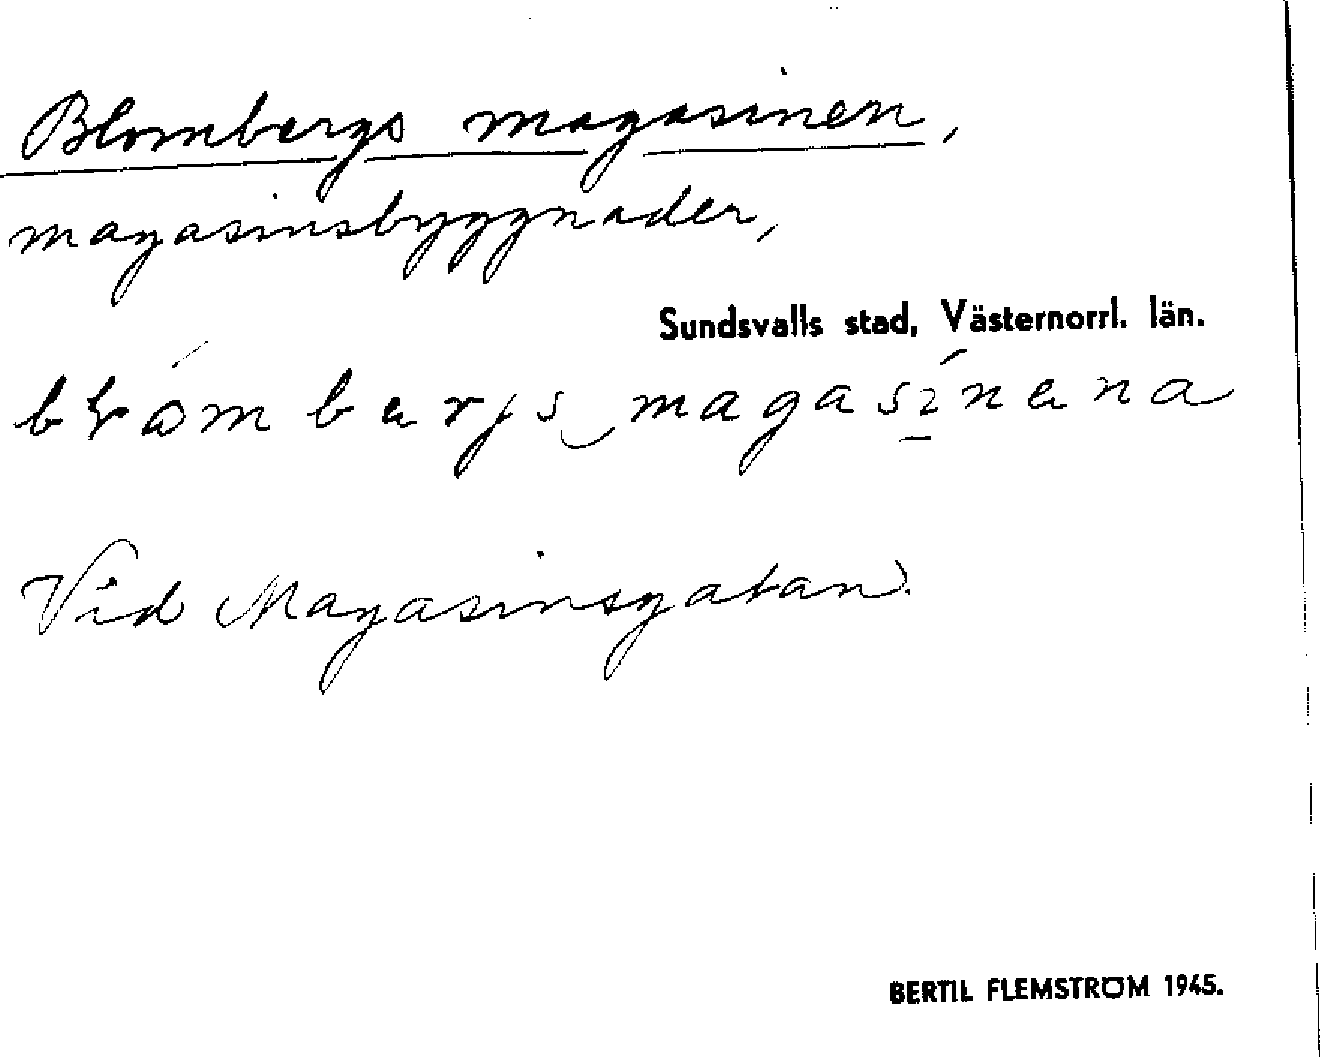 Blombergs magasinen,
magasinsbyggnader,
Sundsvalls stad, Västernorrl. län.
magasínena
Vid Magasinsgatan.
BERTIL FLEMSTRÖM 1945.